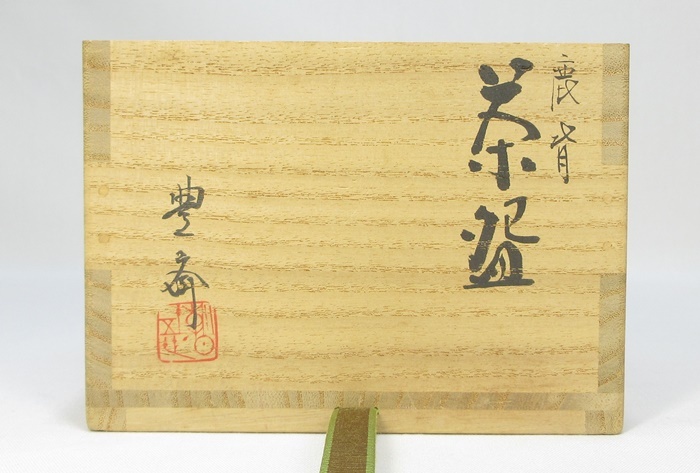 鹿背
茶盌
豊斎